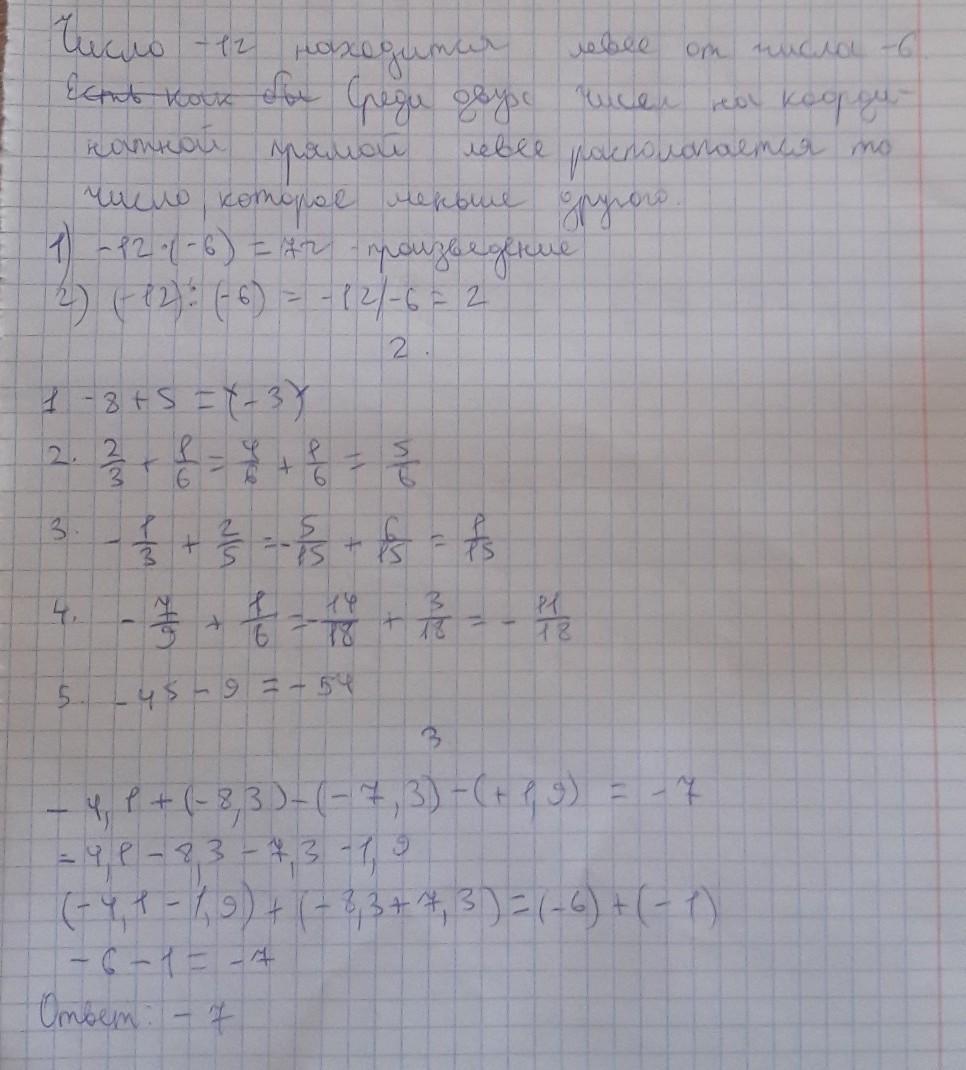 Число -12 находится левее от числа -6.
Есть как бы Среди двух чисел на коорди-
натной прямой левее располагается то
число, которое меньше другого.
1) -12·(-6) = 72 - произведение
2) (-12) : (-6) = -12/-6 = 2
2.
1 -8+5 = (-3)
2. 2/3 + 1/6 = 4/6 + 1/6 = 5/6
3. -1/3 + 2/5 = -5/15 + 6/15 = 1/15
4. -7/9 + 1/6 = -14/18 + 3/18 = -11/18
5. -45 - 9 = -54
3
-4,1+(-8,3)-(-7,3)-(+1,9) = -7
=4,1-8,3-7,3-1,9
(-4,1-1,9)+(-8,3+7,3)=(-6)+(-1)
-6-1= -7
Ответ: -7